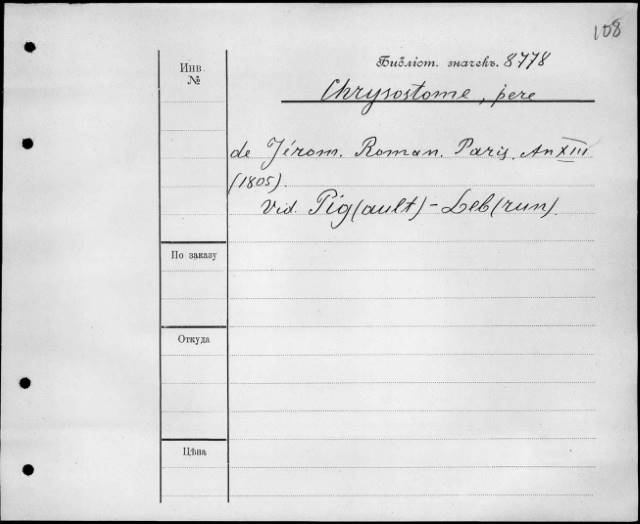 108
Библіот. значекъ. 8778
Инв.
№
Chrysostome, pere
de Jérom. Roman. Paris. An XIII
(1805).
Vid. Pig(ault)-Leb(run).
По заказу
Откуда
Цѣна